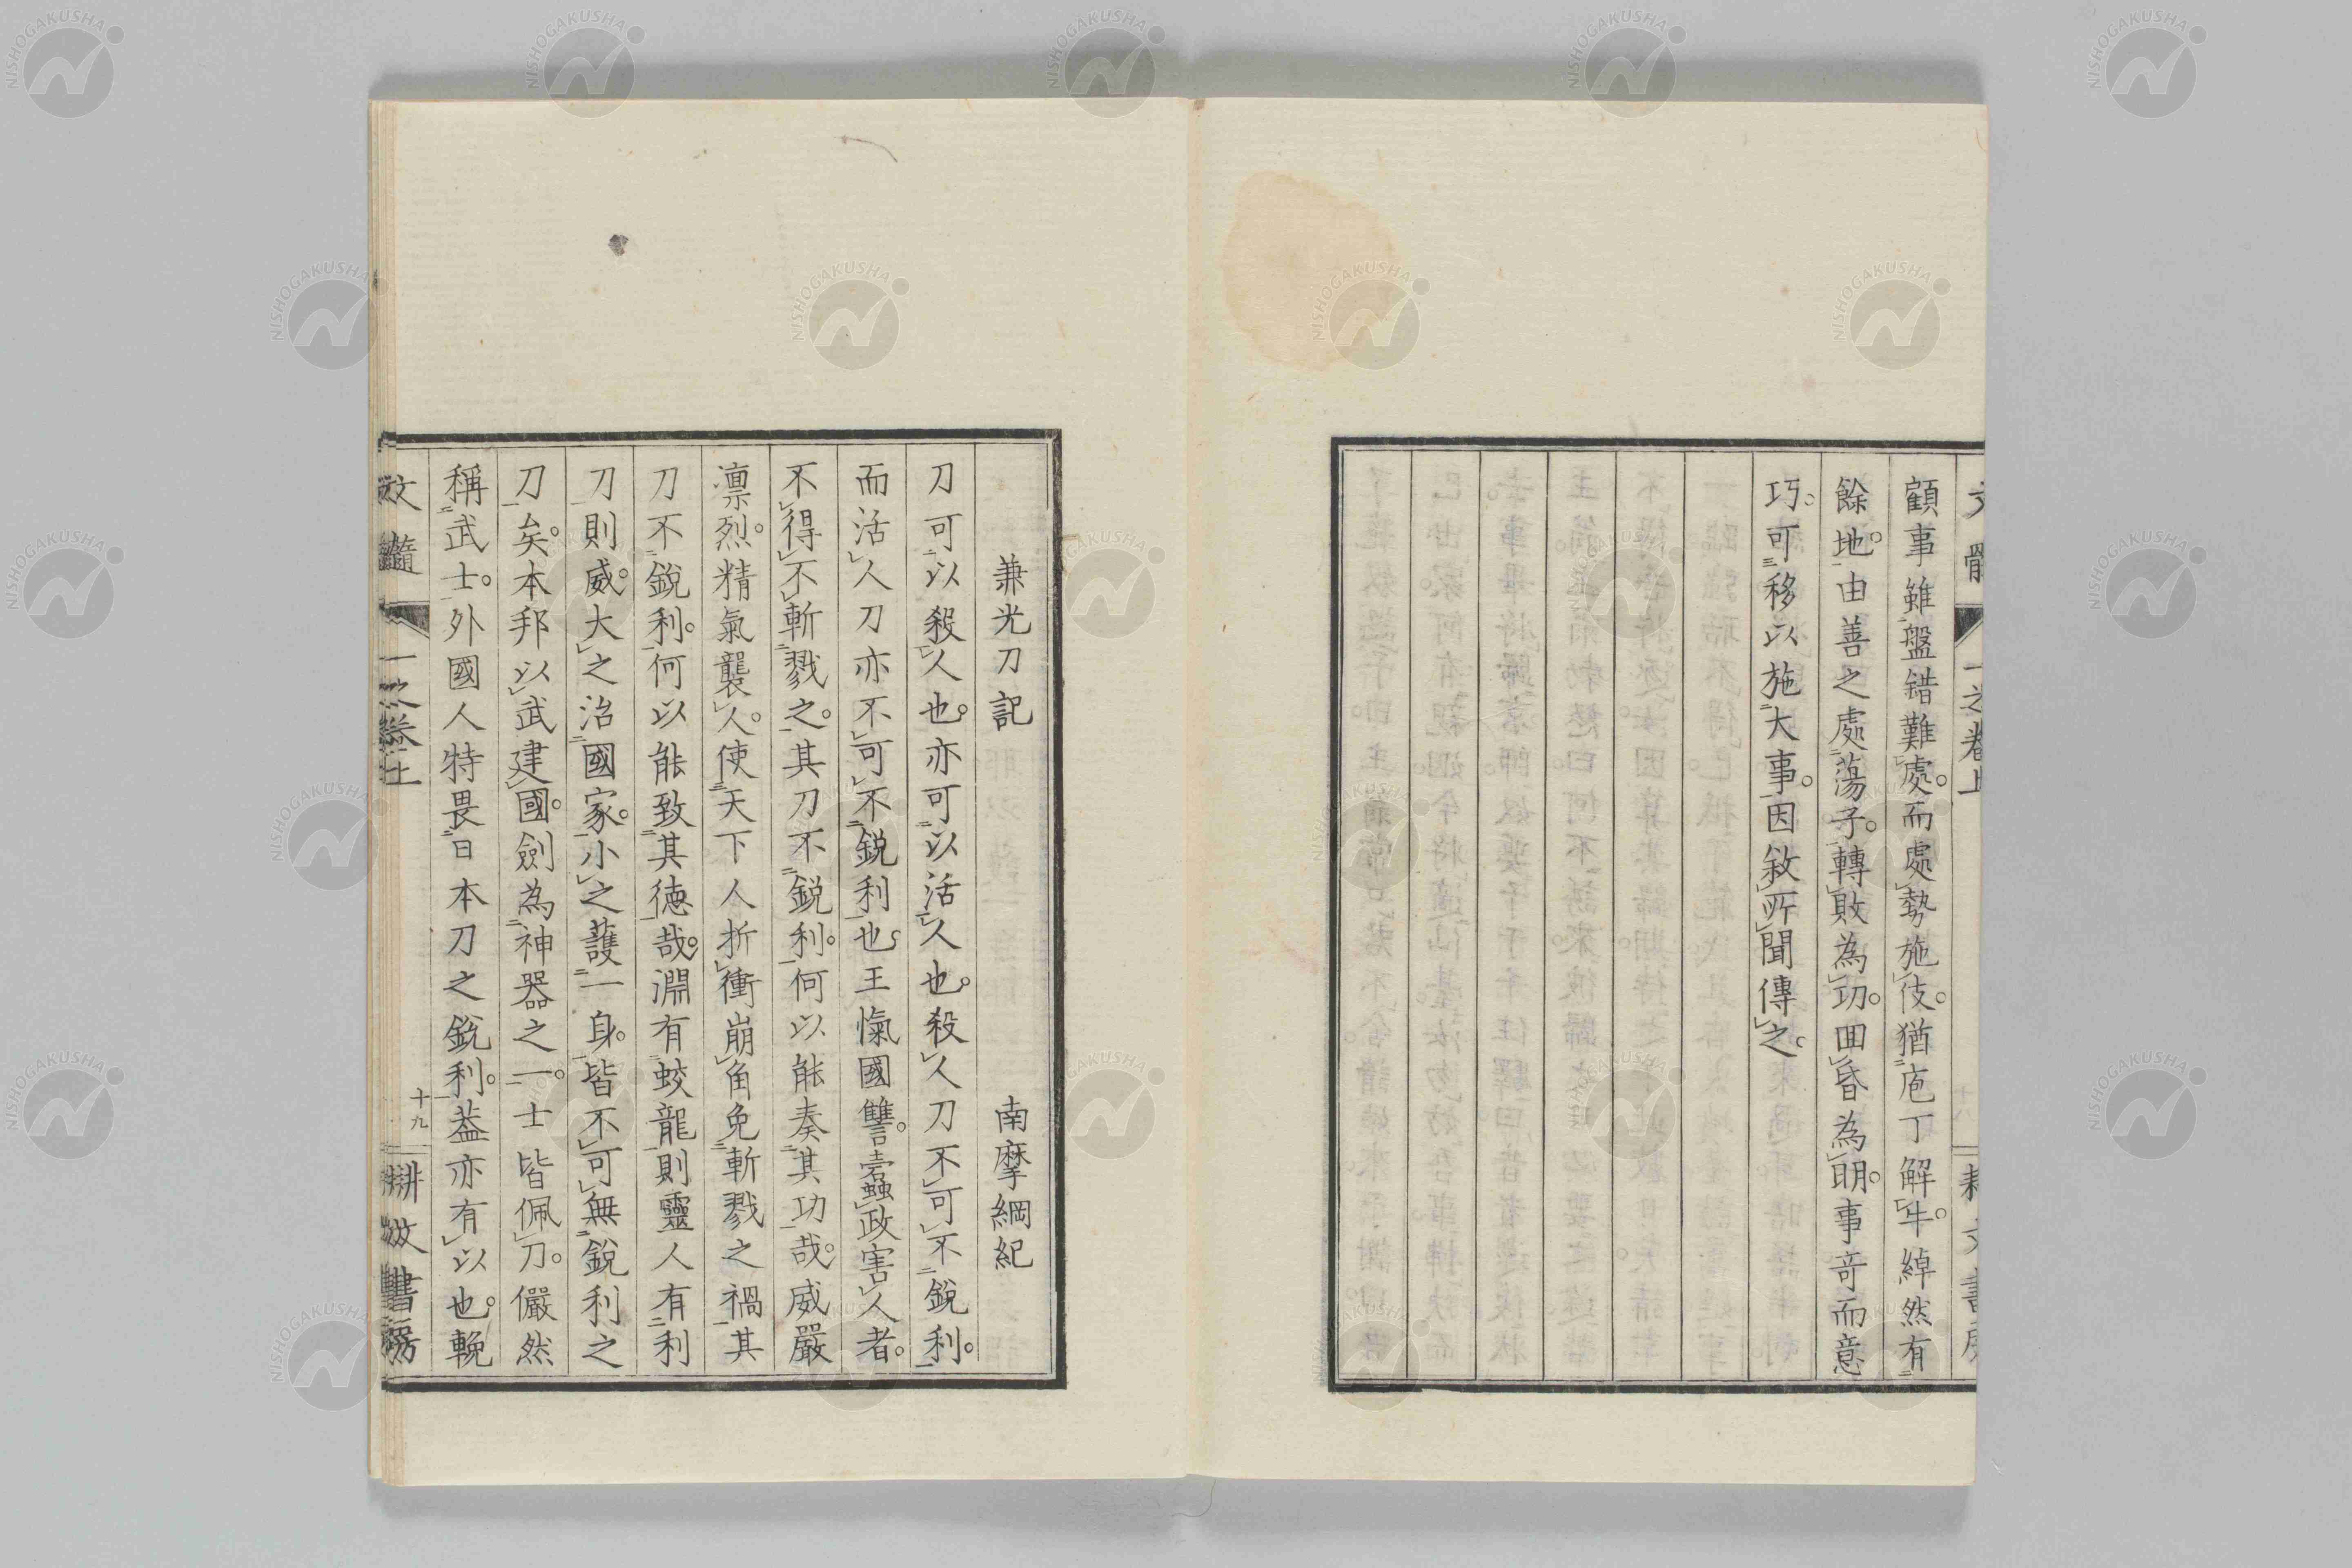 文髓 一之卷上 耕文書房
顧事雖盤錯難處。而處勢施伎。猶庖丁解牛。綽然有
餘地。由善之處蕩子。轉敗為功。回昏為明。事奇而意
巧。可移以施大事。因敘所聞傳之。
兼光刀記 南摩綱紀
刀可以殺人也。亦可以活人也。殺人刀不可不銳利。
而活人刀亦不可不銳利也。王愾國讐。蠹政害人者。
不得不斬戮之。其刀不銳利。何以能奏其功哉。威嚴
凛烈。精氣襲人。使天下人折衝崩角免斬戮之禍。其
刀不銳利。何以能致其德哉。淵有蛟龍則靈。人有利
刀則威。大之治國家。小之護一身。皆不可無銳利之
刀矣。本邦以武建國。劍為神器之一。士皆佩刀。儼然
稱武士。外國人特畏日本刀之銳利。葢亦有以也。輓
文髓 一之卷上 十九 耕文書房
NISHOGAKUSHA